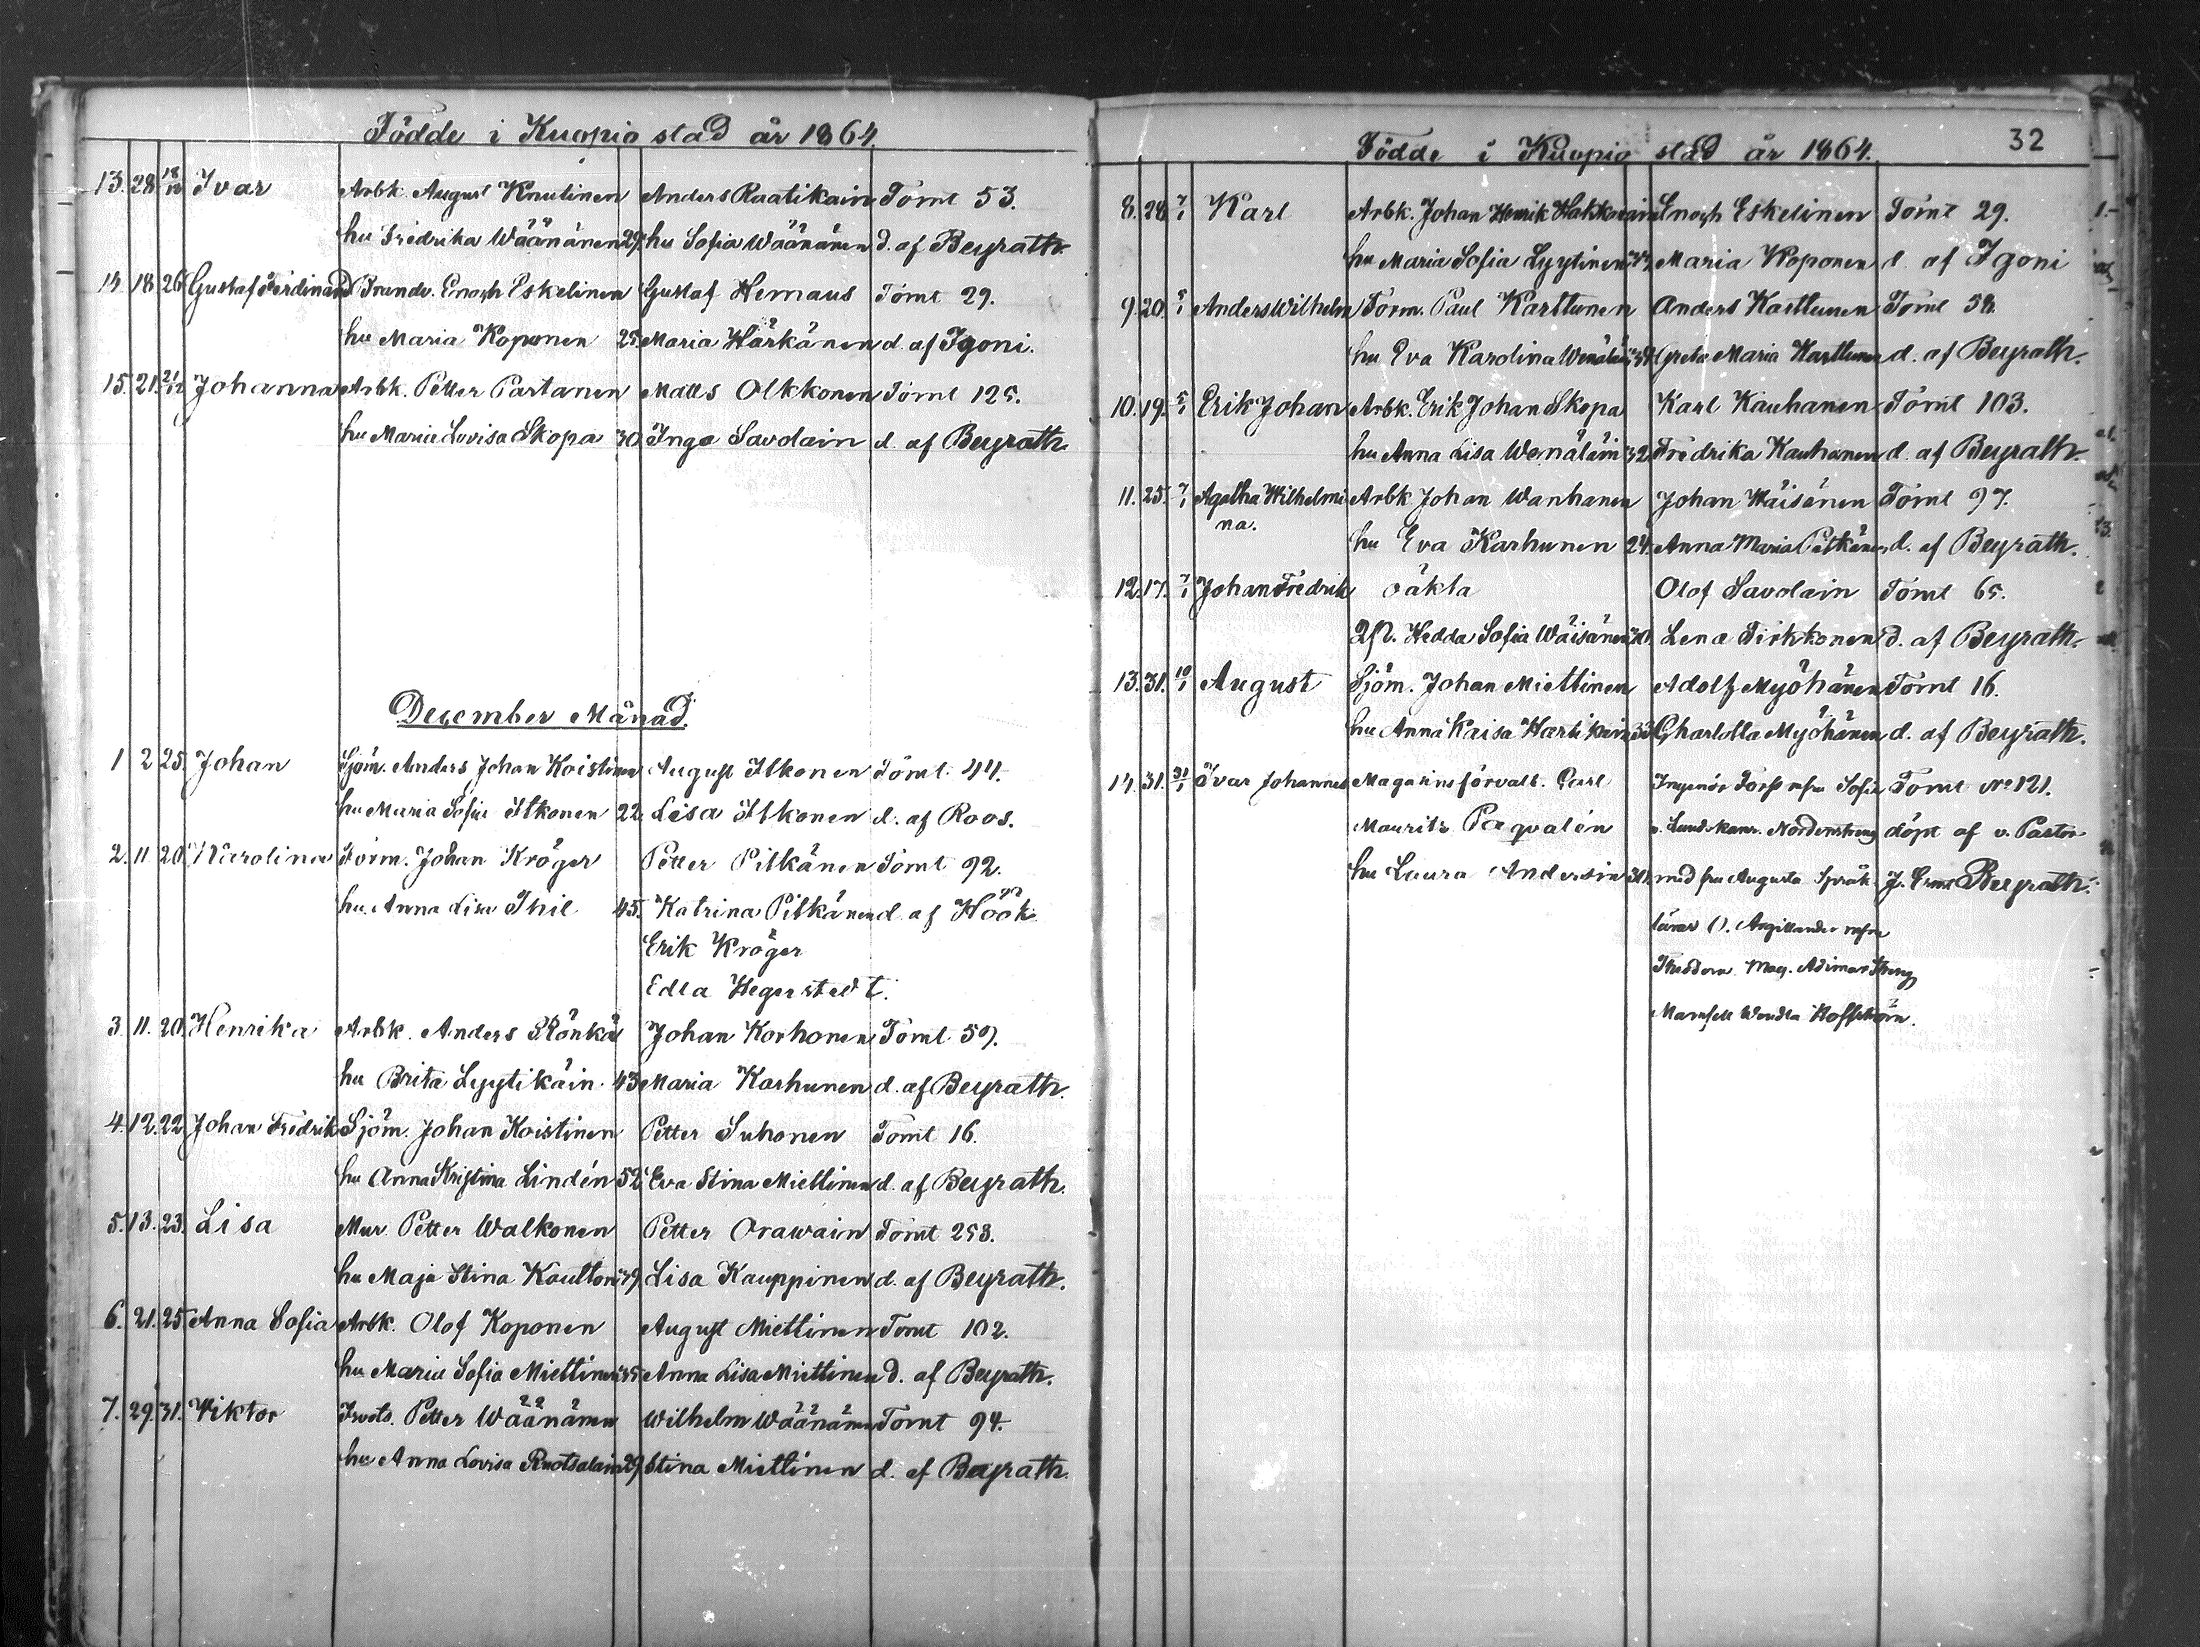 Födde i Kuopio stad år 1864.
13. 28 18/12 Ivar Arbk. August Knutinen Anders Raatikain Tömt 53.
hu Fredrika Wäänänen 29. hu Sofia Wäänänen d. af Beyrath.
14. 18. 26. Gustaf Ferdinand Enoch Eskelinen Gustaf Hemaus Tömt 29.
hu Maria Koponen 25. Maria Härkänen d. af Igoni.
15. 21. Johanna Arbk. Petter Partanen Matts Olkkonen Tömt 125.
hu Maria Lovisa Skopa 30. Inga Savolain d. af Beyrath.
December Månad.
1 2 25. Johan Sjöm. Anders Johan Koistinen August Itkonen Tömt 44.
hu Maria Sofia Itkonen 22. Lisa Itkonen d. af Roos.
2. 11. 20. Karolina Form. Johan Kröger Petter Pitkänen Tömt 92.
hu Anna Lisa Thil 45. Katrina Pitkänen d. af Höök
Erik Kröger
Edla Hegerstedt.
3. 11. 20. Henrika Arbk. Anders Rönkä Johan Korhonen Tömt 59.
hu Brita Lyytikäin 43. Maria Karhunen d. af Beyrath.
4. 12. 22. Johan Fredrik Sjöm. Johan Koistinen Petter Suhonen Tomt 16.
hu Anna Kristina Lindén 52. Eva Stina Miettinen d. af Beyrath.
5. 13. 23. Lisa Mur. Petter Walkonen Petter Orawain Tomt 253.
hu Maja Stina Lisa Kauppinen d. af Beyrath.
6. 21. 25. Anna Sofia Arbk. Olof Koponen August Miettinen Tomt 102.
hu Maria Sofia Miettinen Anna Lisa Miettinen d. af Beyrath.
7. 29. 31. Wiktor Petter Wäänänen Wilhelm Wäänänen Tomt 94.
hu Anna Lovisa Ruotsalain 29. Stina Miettinen d. af Beyrath.
32
Födde i Kuopio stad år 1864.
8. 28. 7/1 Karl Arbk. Johan Henrik Hakkarain Enoch Eskelinen Tömt 29.
hu Maria Sofia Lyytinen Maria Koponen d. af Igoni
9. 20. 5/1 Anders Wilhelm Form. Paul Karttunen Anders Karttunen Tömt 58.
hu Eva Karolina Greta Maria Karttunen d. af Beyrath.
10. 19. 5/1 Erik Johan Arbk. Erik Johan Skopa Karl Kauhanen Tömt 103.
hu Anna Lisa Wenäläin 32. Fredrika Kauhanen d. af Beyrath.
11. 25. 7/1 Agatha Wilhelmi Arbk Johan Wanhanen Johan Wäisänen Tömt 97.
na.
hu Eva Karhunen 24. Anna Maria Pitkänen d. af Beyrath.
12. 17. 7/1 Johan Fredrik oäkta Olof Savolain Tömt 65.
Hedda Sofia Wäisänen Lena Tirkkonen d. af Beyrath.
13. 31. 10/1 August Sjöm. Johan Miettinen Adolf Myöhänen Tömt 16.
hu Anna Kaisa Hartikain 33. Charlotta Myöhänen d. af Beyrath.
14. 31. 31/1 Ivar Johannes Magasinsförvalt. Carl Ingeniör Sofia Tomt No 121.
Mauritz Paqvalén Nordenstreng döpt af v. Pastor
hu Laura Andersin med fru Augusta Språk J. Ernst Beyrath.
lärar O. Argillander
Theodora Mag.
Mamsell Wendla